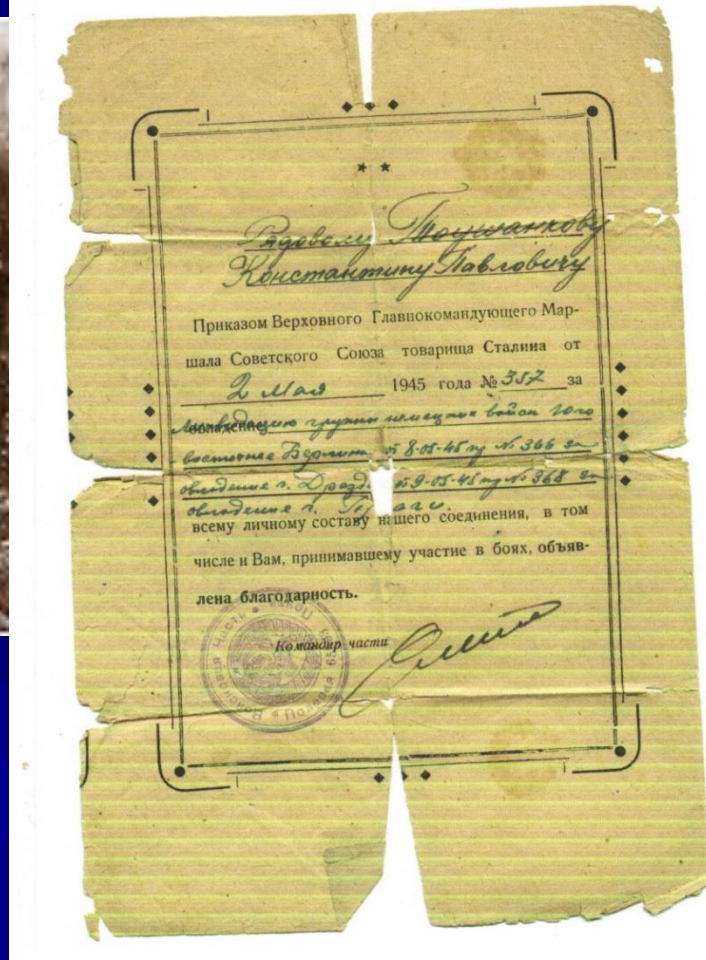 Рядовому Тоушанкову
Константину Павловичу
Приказом Верховного Главнокомандующего Мар-
шала Советского Союза товарища Сталина от
2 Мая 1945 года № 357 за
овладение ликвидацию группы немецких войск юго
восточнее Берлина, от 8-05-45 пр № 366 за
овладение г. Дрезд от 9-05-45 пр № 368 за
овладение г. аги.
всему личному составу нашего соединения, в том
числе и Вам, принимавшему участие в боях, объяв-
лена благодарность.
Командир части